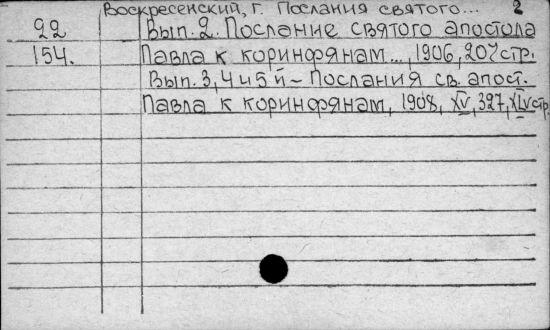 Воскресенский, г. Послания святого... 2
22 Вып. 2. Послание святого апостола
154. Павла к коринфянам..., 1906, 207 стр.
Вып. 3, 4 и 5й - Послания св. апост.
Павла к коринфянам, 1908, XV, 327, XLV стр.